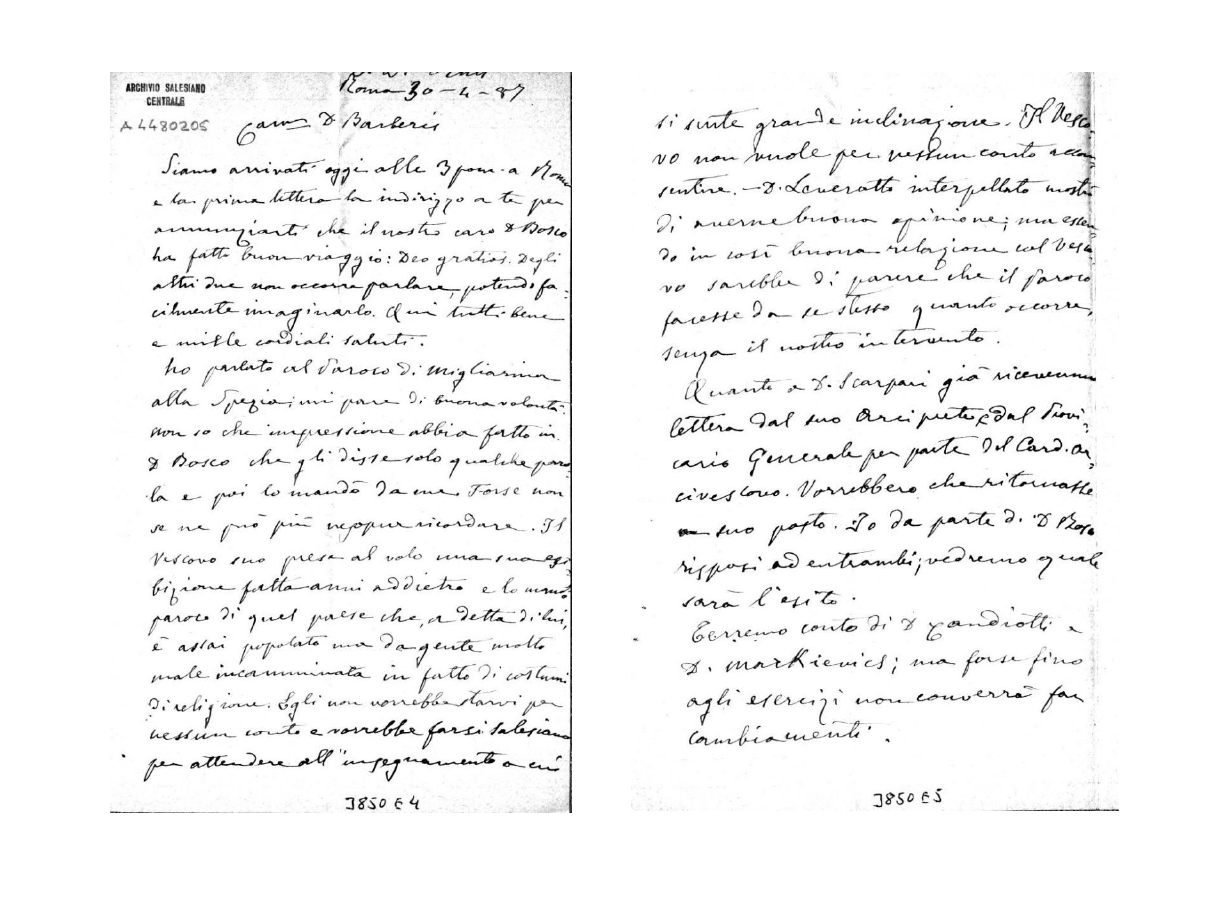 ARCHIVIO SALESIANO
CENTRALE
A 4480205
Roma 30-4-87
Carmo D Barberis
Siamo arrivati oggi alle 3 pom. a Roma
e la prima lettera la indirizzo a te per
annunziarti che il nostro caro D Bosco
ha fatto buon viaggio: Deo gratias. Degli
altri due non occorre parlare, potendo fa-
cilmente imaginarlo. Qui tutti bene
e mille cordiali saluti.
Ho parlato al Paroco di Migliarina
alla Spezia; mi pare di buona volontà.
Non so che impressione abbia fatto in
D Bosco che gli disse solo qualche paro-
la e poi lo mandò da me. Forse non
se ne può più neppur ricordare. Il
Vescovo suo prese al volo una sua esi-
bizione fatta anni addietro e lo mandò
paroco di quel paese che, a detta di lui,
è assai popolato ma da gente molto
male incamminata in fatto di costumi
di religione. Egli non vorrebbe starvi per
nessun conto e vorrebbe farsi salesiano
per attendere all'insegnamento a cui
J850E4
si sente grande inclinazione. Il Vesco-
vo non vuole per nessun conto accon-
sentire. - D. Leveratto interpellato mostrò
di averne buona opinione; ma essen-
do in così buona relazione col Vesco-
vo sarebbe di parere che il Paroco
facesse da se stesso quanto occorre,
senza il nostro intervento.
Quanto a D. Scarpari già ricevemmo
lettera dal suo Arciprete, e dal Provi-
cario Generale per parte del Card. Ar-
civescovo. Vorrebbero che ritornasse
suo posto. Io da parte di D Bosco
risposi ad entrambi; vedremo quale
sarà l'esito.
Terremo conto di D Candiotti e
D. Markievics; ma forse fino
agli esercizi non converrà far
cambiamenti.
J850E5